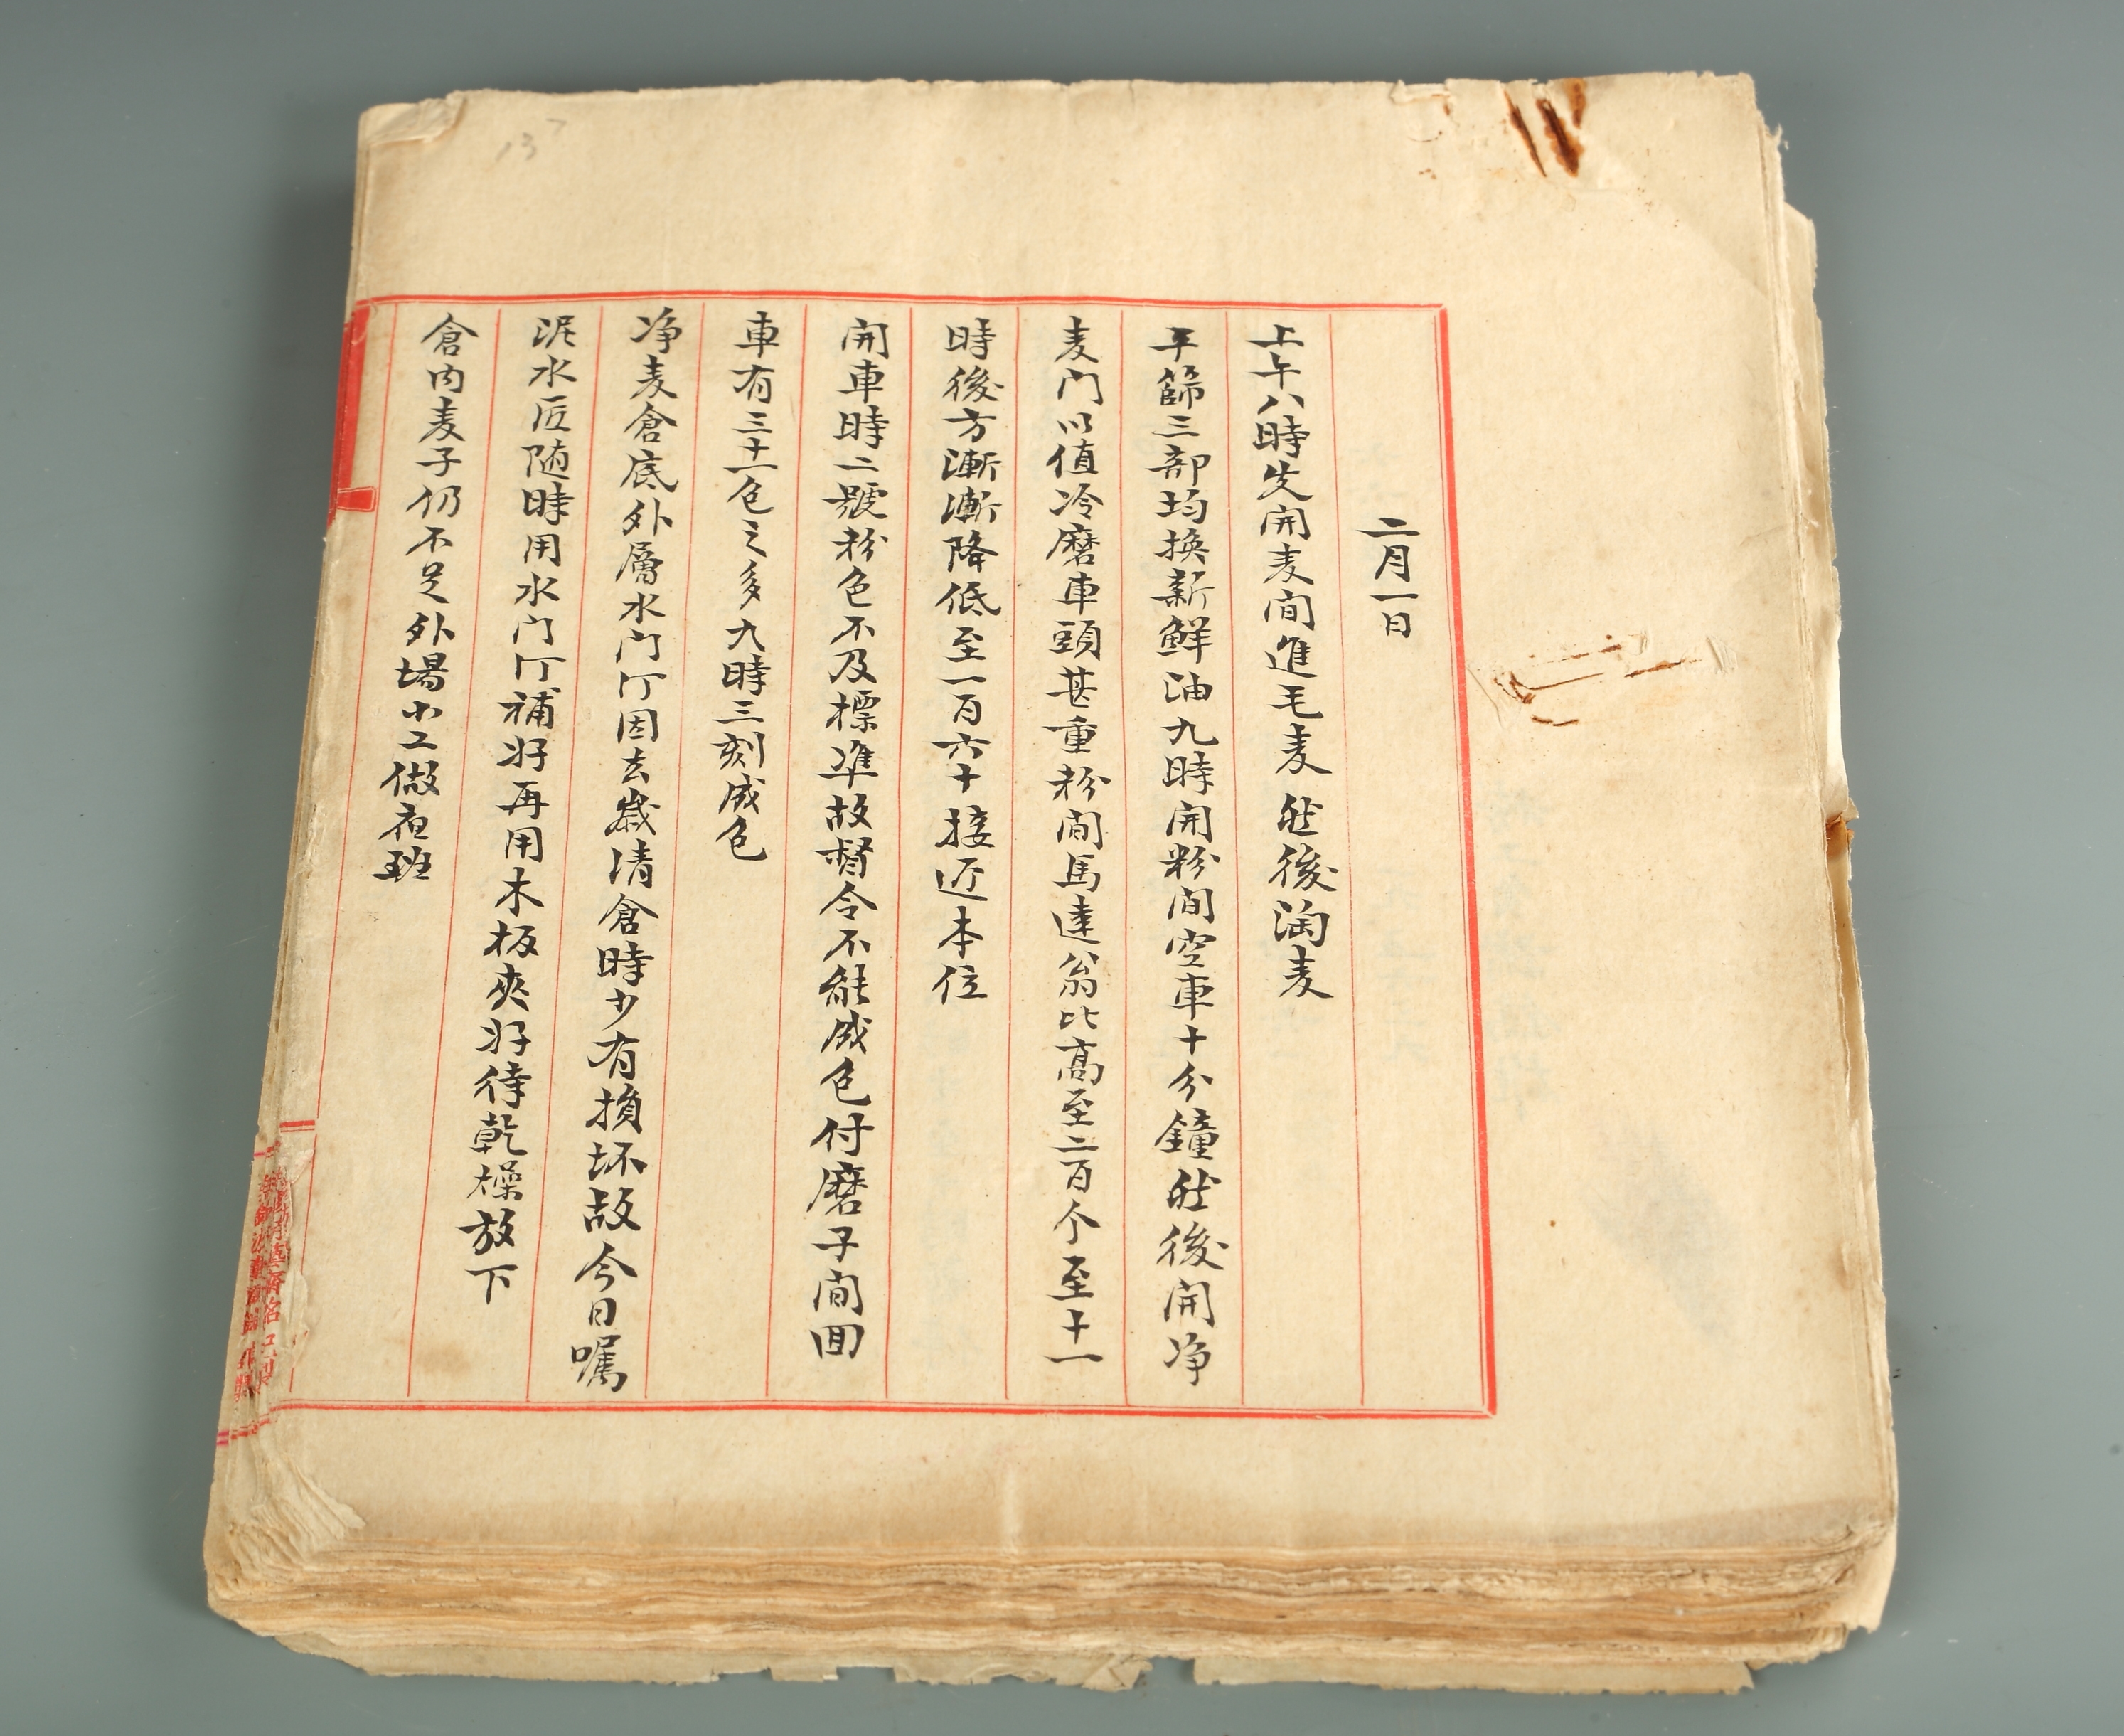 二月一日
上午八時先開麦间進毛麦然後淘麦
平篩三部均换新鮮油九時開粉间空車十分鐘然後開净
麦门以值冷磨車頭甚重粉间馬達翁比高至二百个至十一
時後方漸漸降低至一百六十接近本位
開車時二號粉色不及標準故督令不能成色付磨子间囬
車有三十一色之多九時三刻成色
净麦倉底外層水门汀因去歲清倉時少有損坏故今日嘱
泥水匠随時用水门汀補好再用木板夾好待乾燥放下
倉内麦子仍不足外場小工做夜班
13